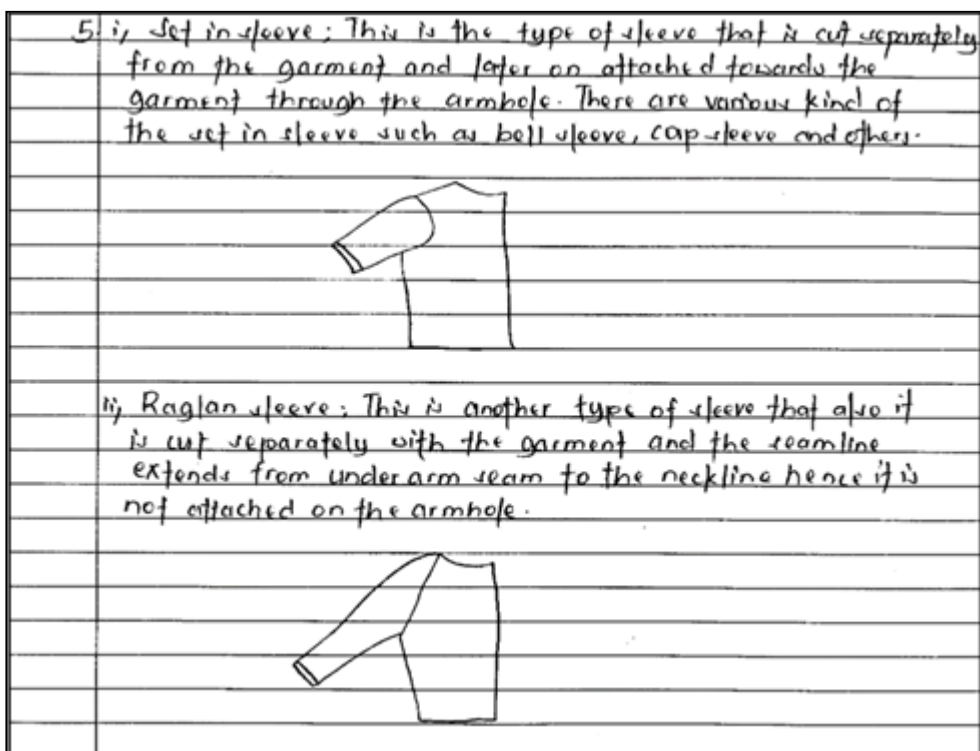 5. i, Set in sleeve: This is the type of sleeve that is cut separately
from the garment and later on attached towards the
garment through the armhole. There are various kind of
the set in sleeve such as bell sleeve, cap sleeve and others.
ii, Raglan sleeve: This is another type of sleeve that also it
is cut separately with the garment and the seamline
extends from under arm seam to the neckline hence it is
not attached on the armhole.